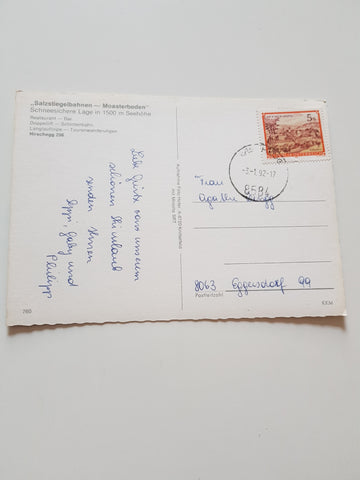 „Salzstiegelbahnen — Moasterboden"
Schneesichere Lage in 1500 m Seehöhe
Restaurant — Bar
Doppellift — Schlepplifte
Langlaufloipe — Tourenwanderungen
Hirschegg 256
Liebe Grüße von unserem
schönen Skiurlaub
senden Ihnen
Gaby und
Philipp
760
5 S
-3-1.92-17
8584
Frau
Agathe
8063 Eggersdorf 99
Postleitzahl